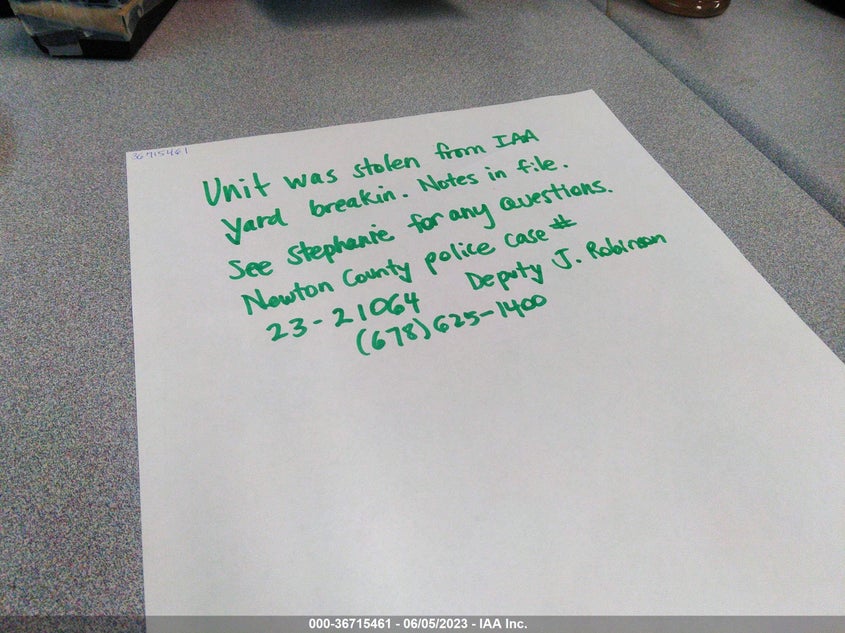 36715461
Unit was stolen from IAA
Yard breakin. Notes in file.
See Stephanie for any questions.
Newton County police case #
23-21064 Deputy J. Robinson
(678)625-1400
000-36715461 - 06/05/2023 - IAA Inc.